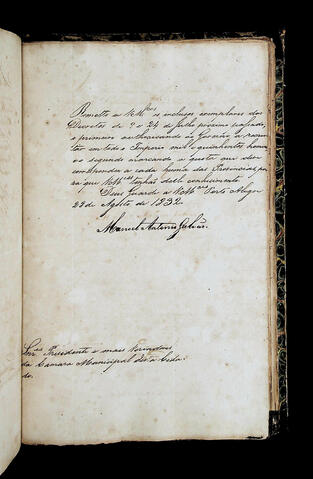 Remetto a VVMces os inclusos exemplares dos
Decretos de 7 e 24 de Julho proximo passado
o primeiro authorisando ao Governo a recru
tar em todo o Imperio mil e quinhentos homens
o segundo marcando a quota que deve
contribuir a cada huma das Provincias pa
ra que VVMces tenhão deste conhecimento
Deus Guarde a VVMces Porto Alegre
23 de Agosto de 1832
Manoel Antonio Galvão
Snres Presidente e mais Vereadores
da Camara Municipal desta Cida
de.